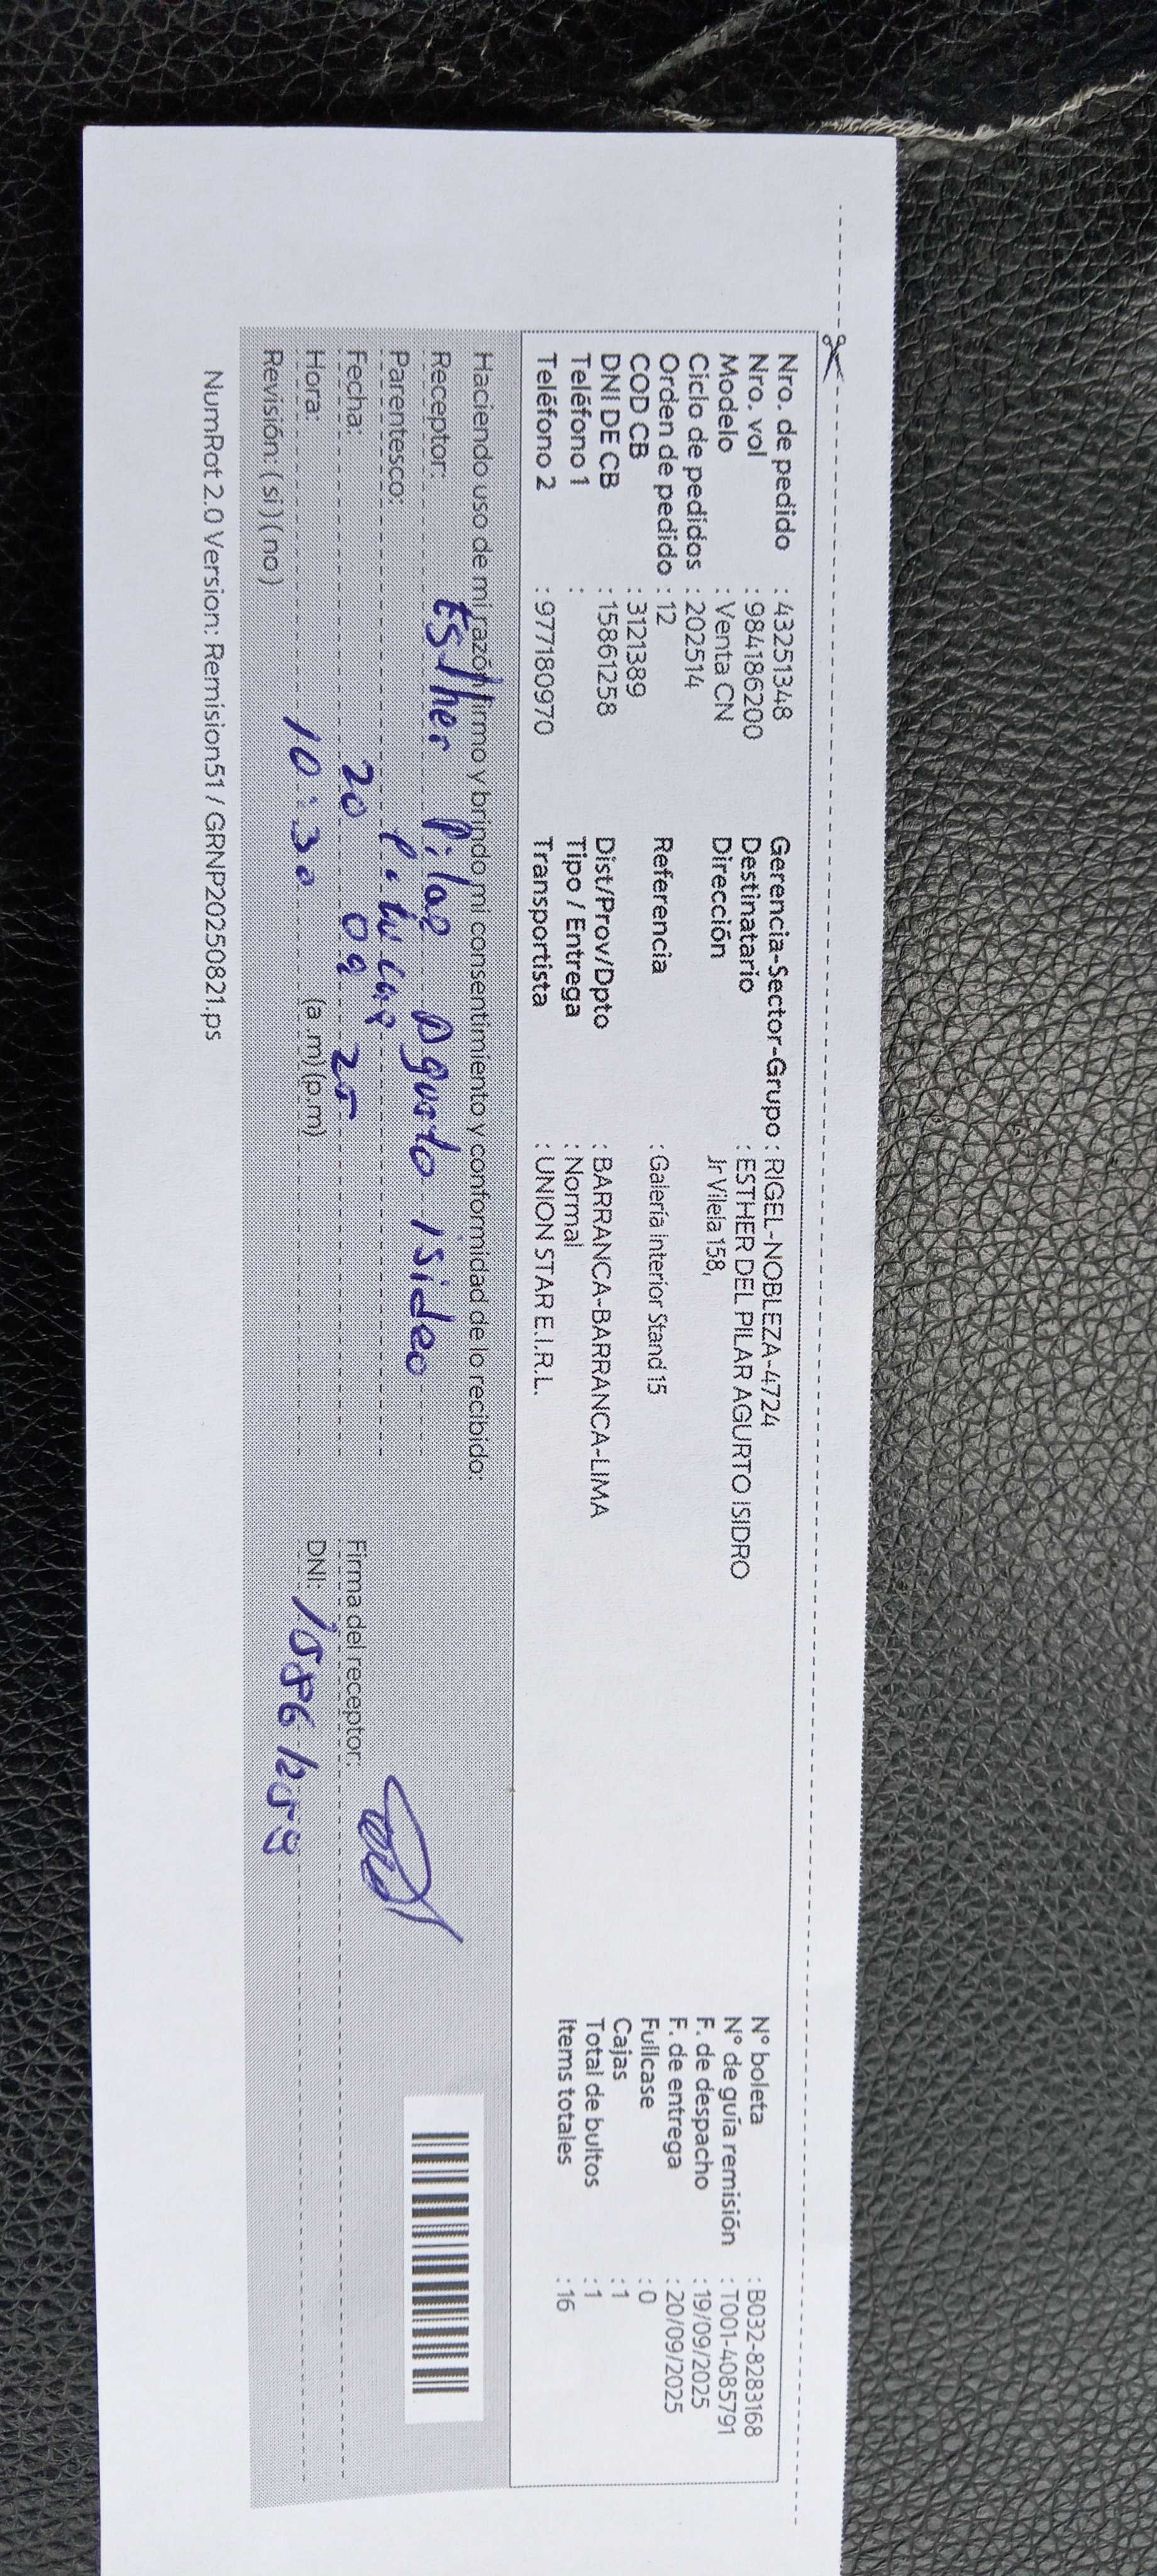 Nro. de pedido : 43251348
Nro. vol : 984186200
Modelo : Venta CN
Ciclo de pedidos : 202514
Orden de pedido : 12
COD CB : 3121389
DNI DE CB : 15861258
Teléfono 1 :
Teléfono 2 : 977180970
Gerencia-Sector-Grupo : RIGEL-NOBLEZA-4724
Destinatario : ESTHER DEL PILAR AGURTO ISIDRO
Dirección Jr Vilela 158,
Referencia : Galería interior Stand 15
Dist/Prov/Dpto : BARRANCA-BARRANCA-LIMA
Tipo / Entrega : Normal
Transportista : UNION STAR E.I.R.L.
N° boleta : B032-8283168
N° de guía remisión : T001-4085791
F. de despacho : 19/09/2025
F. de entrega : 20/09/2025
Fullcase : 0
Cajas : 1
Total de bultos : 1
Items totales : 16
Haciendo uso de mi razón firmo y brindo mi consentimiento y conformidad de lo recibido:
Receptor: Esther Pilar Agurto isidro
Parentesco:
Fecha: 20 09 25
Hora: 10:30 (a.m) (p.m)
Revisión: ( si ) ( no )
Firma del receptor:
DNI: 15861258
NumRot 2.0 Version: Remision51 / GRNP20250821.ps